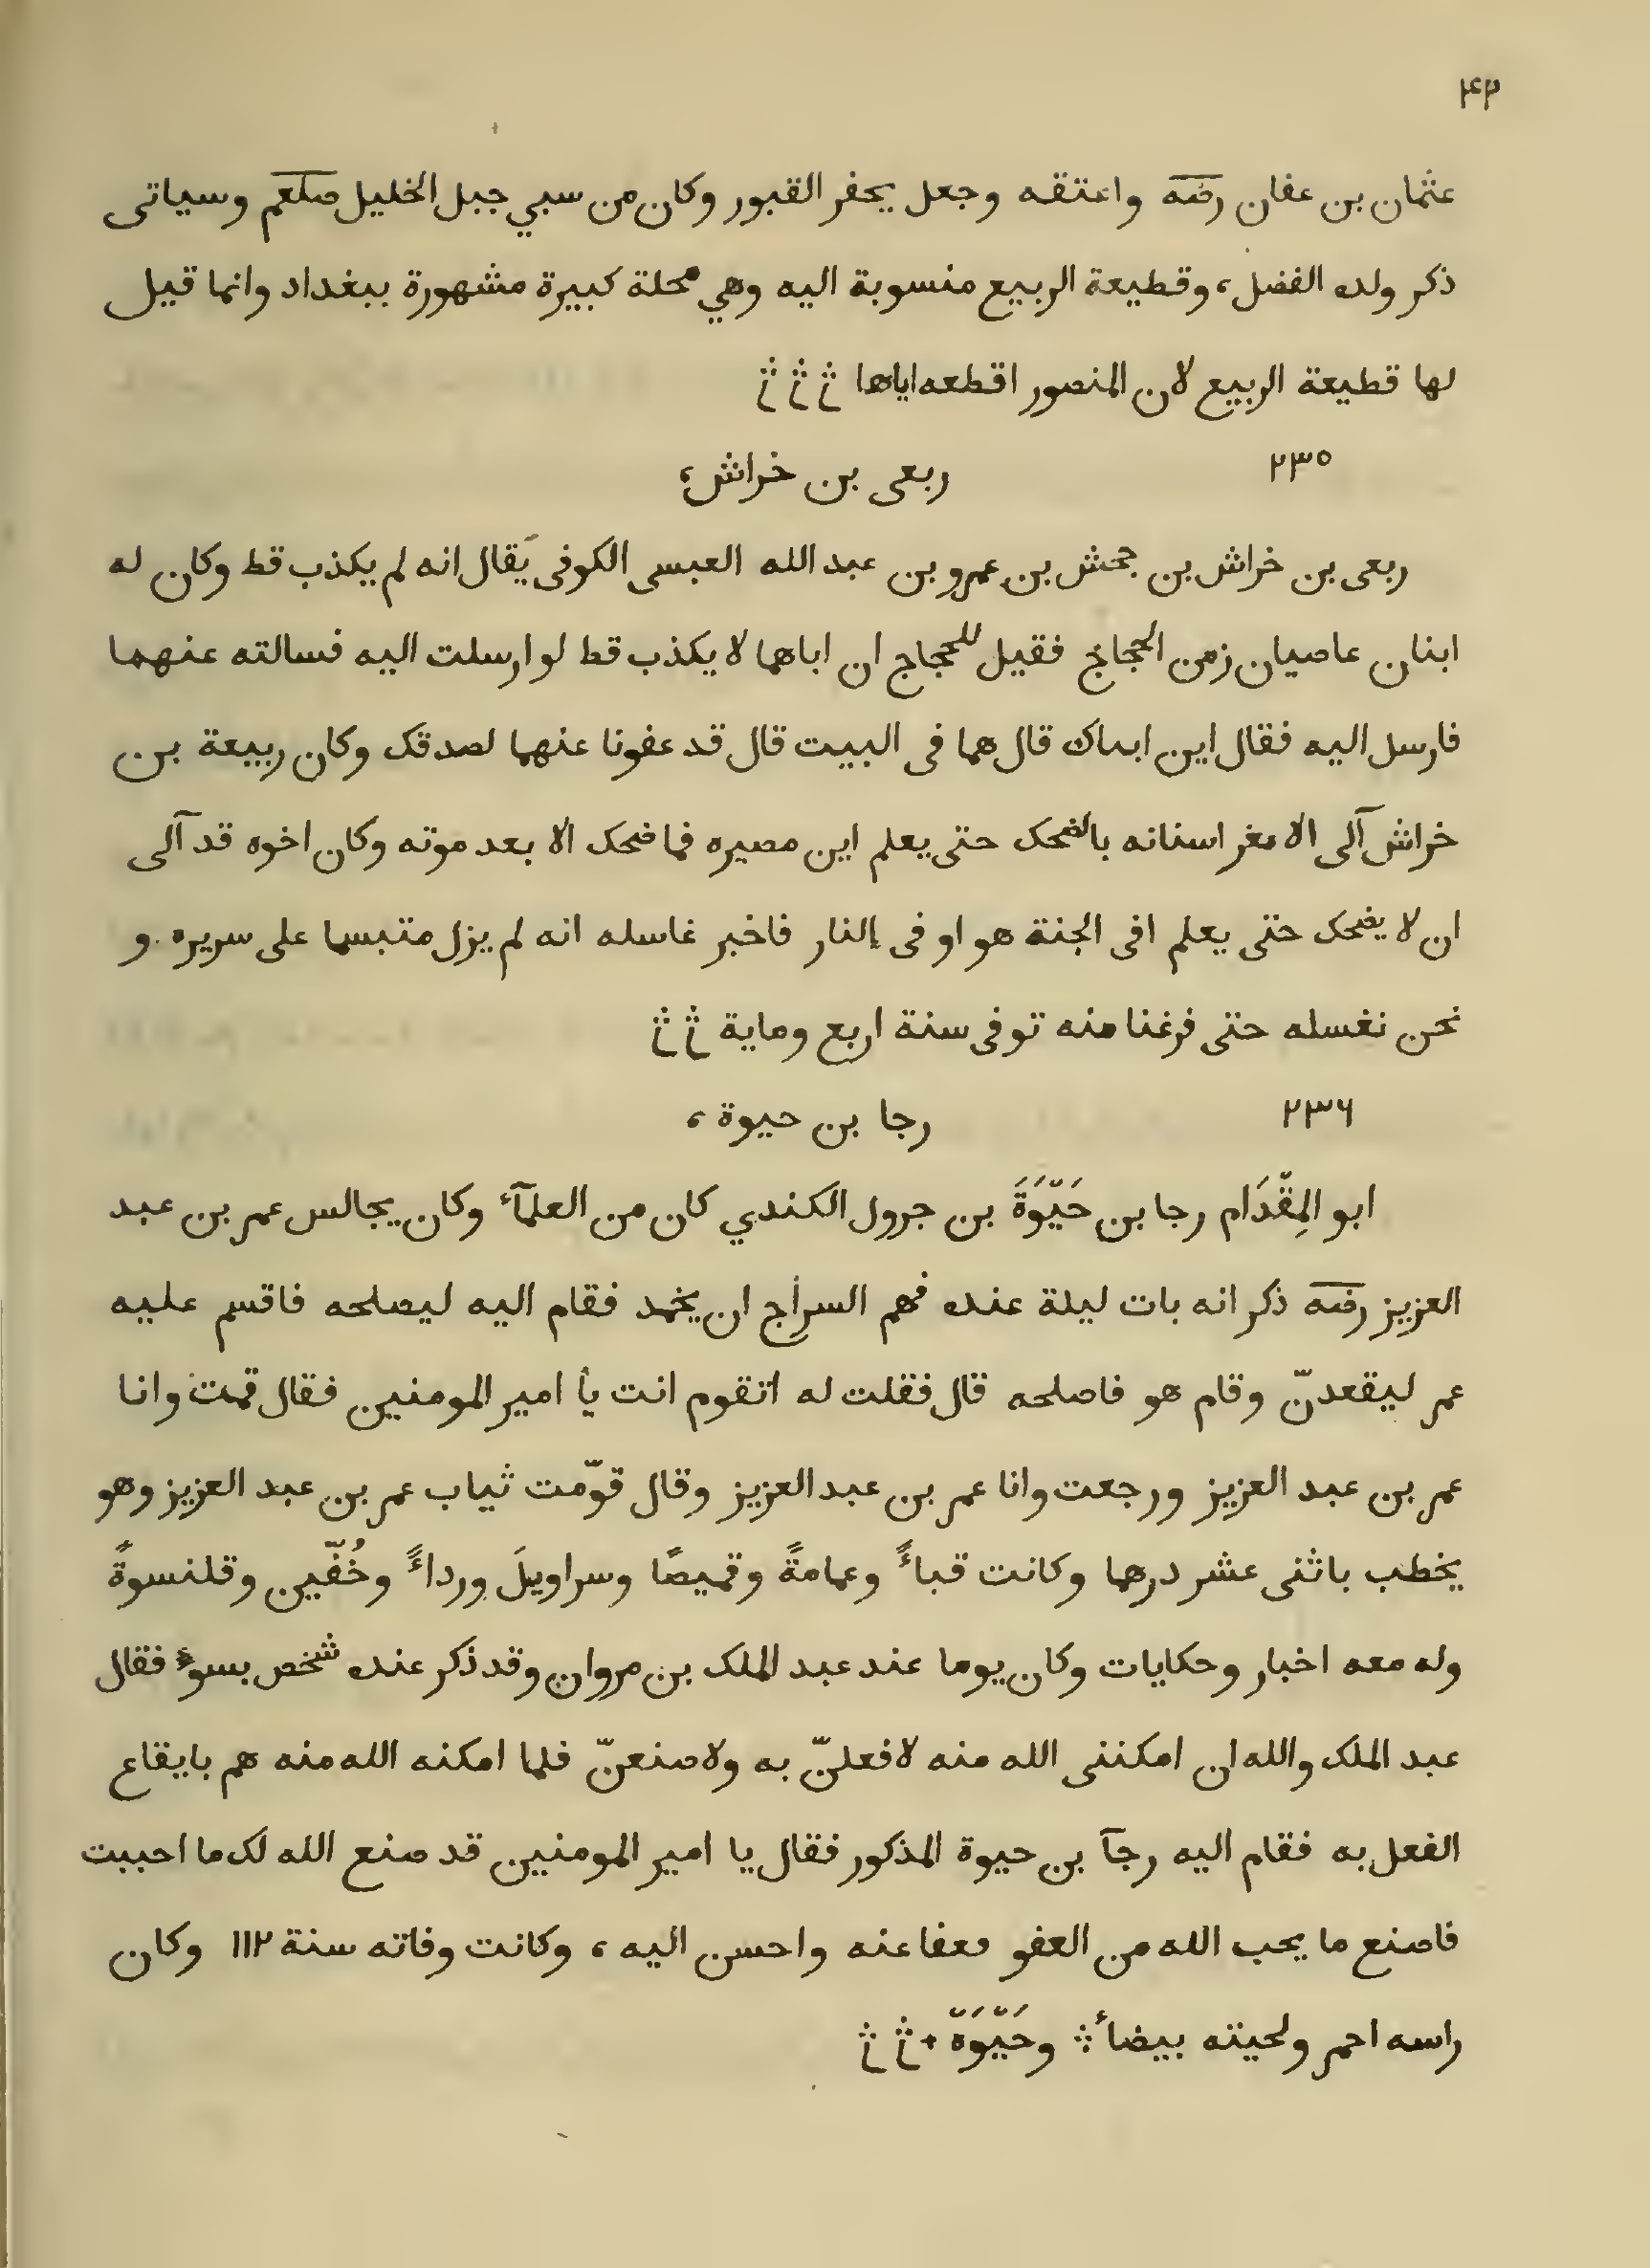 ۴۲
عثمان بن عفان رضه واعتقه وجعل يحفر القبور وكان من سبي جبل الخليل صلعم وسياتى
ذكر ولده الفضل، وقطيعة الربيع منسوبة اليه وهي محلة كبيرة مشهورة ببغداد وانما قيل
لها قطيعة الربيع لان المنصور اقطعه اياها
٢٣٥
ربعى بن خراش،
ربعى بن خراش بن جحش بن عمرو بن عبد الله العبسى الكوفى يقال انه لم يكذب قط وكان له
ابنان عاصيان زمن الحجاج فقيل للحجاج ان اباهما لا يكذب قط لو ارسلت اليه فسالته عنهما
فارسل اليه فقال اين ابناك قال هما فى البيت قال قد عفونا عنهما لصدقك وكان ربيعة بن
خراش آلى الا مغر اسنانه بالضحك حتى يعلم اين مصيره فما ضحك الا بعد موته وكان اخوه قد آلى
ان لا يضحك حتى يعلم افى الجنة هو او فى النار فاخبر غاسله انه لم يزل متبسما على سريره و
نحن نغسله حتى فرغنا منه توفى سنة اربع وماية
٢٣٦
رجا بن حيوة،
ابو المِقّدَام رجا بن حَيّوَةَ بن جرول الكندي كان من العلمآء وكان يجالس عمر بن عبد
العزيز رضه ذكر انه بات ليلة عنده فهم السراج ان يخمد فقام اليه ليصلحه فاقسم عليه
عمر ليقعدنّ وقام هو فاصلحه قال فقلت له اتقوم انت يا امير المومنين فقال قمت وانا
عمر بن عبد العزيز ورجعت وانا عمر بن عبد العزيز وقال قوّمت ثياب عمر بن عبد العزيز وهو
يخطب باثنى عشر درهما وكانت قباءً وعمامةً وقميصًا وسراويلَ ورداءً وخُفّين وقلنسوةً
وله معه اخبار وحكايات وكان يوما عند عبد الملك بن مروان وقد ذكر عنده شخص بسوء فقال
عبد الملك والله ان امكننى الله منه لافعلنّ به ولاصنعنّ فلما امكنه الله منه هم بايقاع
الفعل به فقام اليه رجآ بن حيوة المذكور فقال يا امير المومنين قد صنع الله لك ما احببت
فاصنع ما يحب الله من العفو فعفا عنه واحسن اليه، وكانت وفاته سنة ١١٢ وكان
راسه احمر ولحيته بيضاء وحَيّوَة